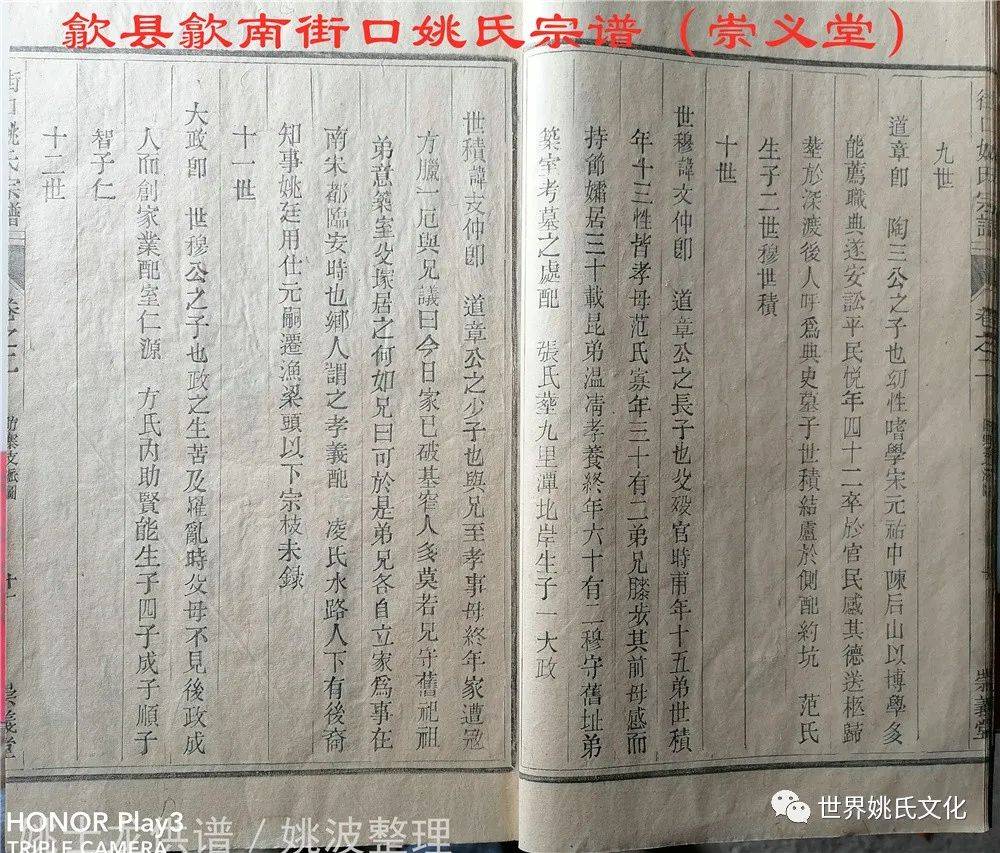 歙县歙南街口姚氏宗谱（崇义堂）
街口姚氏宗譜
崇義堂
九世
道章卽 陶三公之子也幼性嗜學宋元祐中陳后山以博學多
能薦職典遂安訟平民悦年四十二卒於官民感其德送柩歸
塟於深渡後人呼爲典史墓子世積結廬於側配約坑 范氏
生子二世穆世積
十世
世穆諱文仲卽 道章公之長子也父殁官時甫年十五弟世積
年十三性皆孝母范氏寡年三十有二弟兄膝於其前母感而
持節孀居三十載昆弟溫凊孝養終年六十有二穆守舊址弟
築室考墓之處配 張氏塟九里潭北岸生子一大政
世積諱友仲卽 道章公之少子也與兄至孝事母終年家遭寇
方臘一厄與兄議曰今日家已破基窄人多莫若兄守舊祀祖
弟意築室父塚居之何如兄曰可於是弟兄各自立家爲事在
南宋都臨安時也鄉人謂之孝義配 凌氏水路人下有後裔
知事姚廷用仕元嗣遷漁梁頭以下宗枝未録
十一世
大政卽 世穆公之子也政之生苦及罹亂時父母不見後政成
人而創家業配室仁源 方氏内助賢能生子四子成子順子
智子仁
十二世
街口姚氏宗譜
卷之二
十一
崇義堂
HONOR Play3
TRIPLE CAMERA
供谱 / 姚波整理
世界姚氏文化